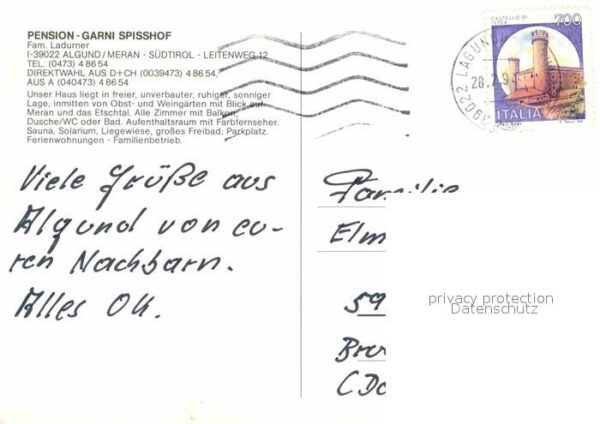 PENSION - GARNI SPISSHOF
Fam. Ladurner
I-39022 ALGUND / MERAN - SÜDTIROL - LEITENWEG 12
TEL. (0473) 4 86 54
DIREKTWAHL AUS D+CH (0039473) 4 86 54,
AUS A (040473) 4 86 54
Unser Haus liegt in freier, unverbauter, ruhiger, sonniger
Lage, inmitten von Obst- und Weingärten mit Blick auf
Meran und das Etschtal. Alle Zimmer mit Balkon,
Dusche/WC oder Bad. Aufenthaltsraum mit Farbfernseher.
Sauna, Solarium, Liegewiese, großes Freibad; Parkplatz.
Ferienwohnungen - Familienbetrieb.
Viele Grüße aus
Algund von eu-
ren Nachbarn.
Alles Ok.
CASTELLO DI
IVREA
700
ITALIA
39022 LAGUND
28.7.9
Familie
Elm
59
Bre
(Do
privacy protection
Datenschutz